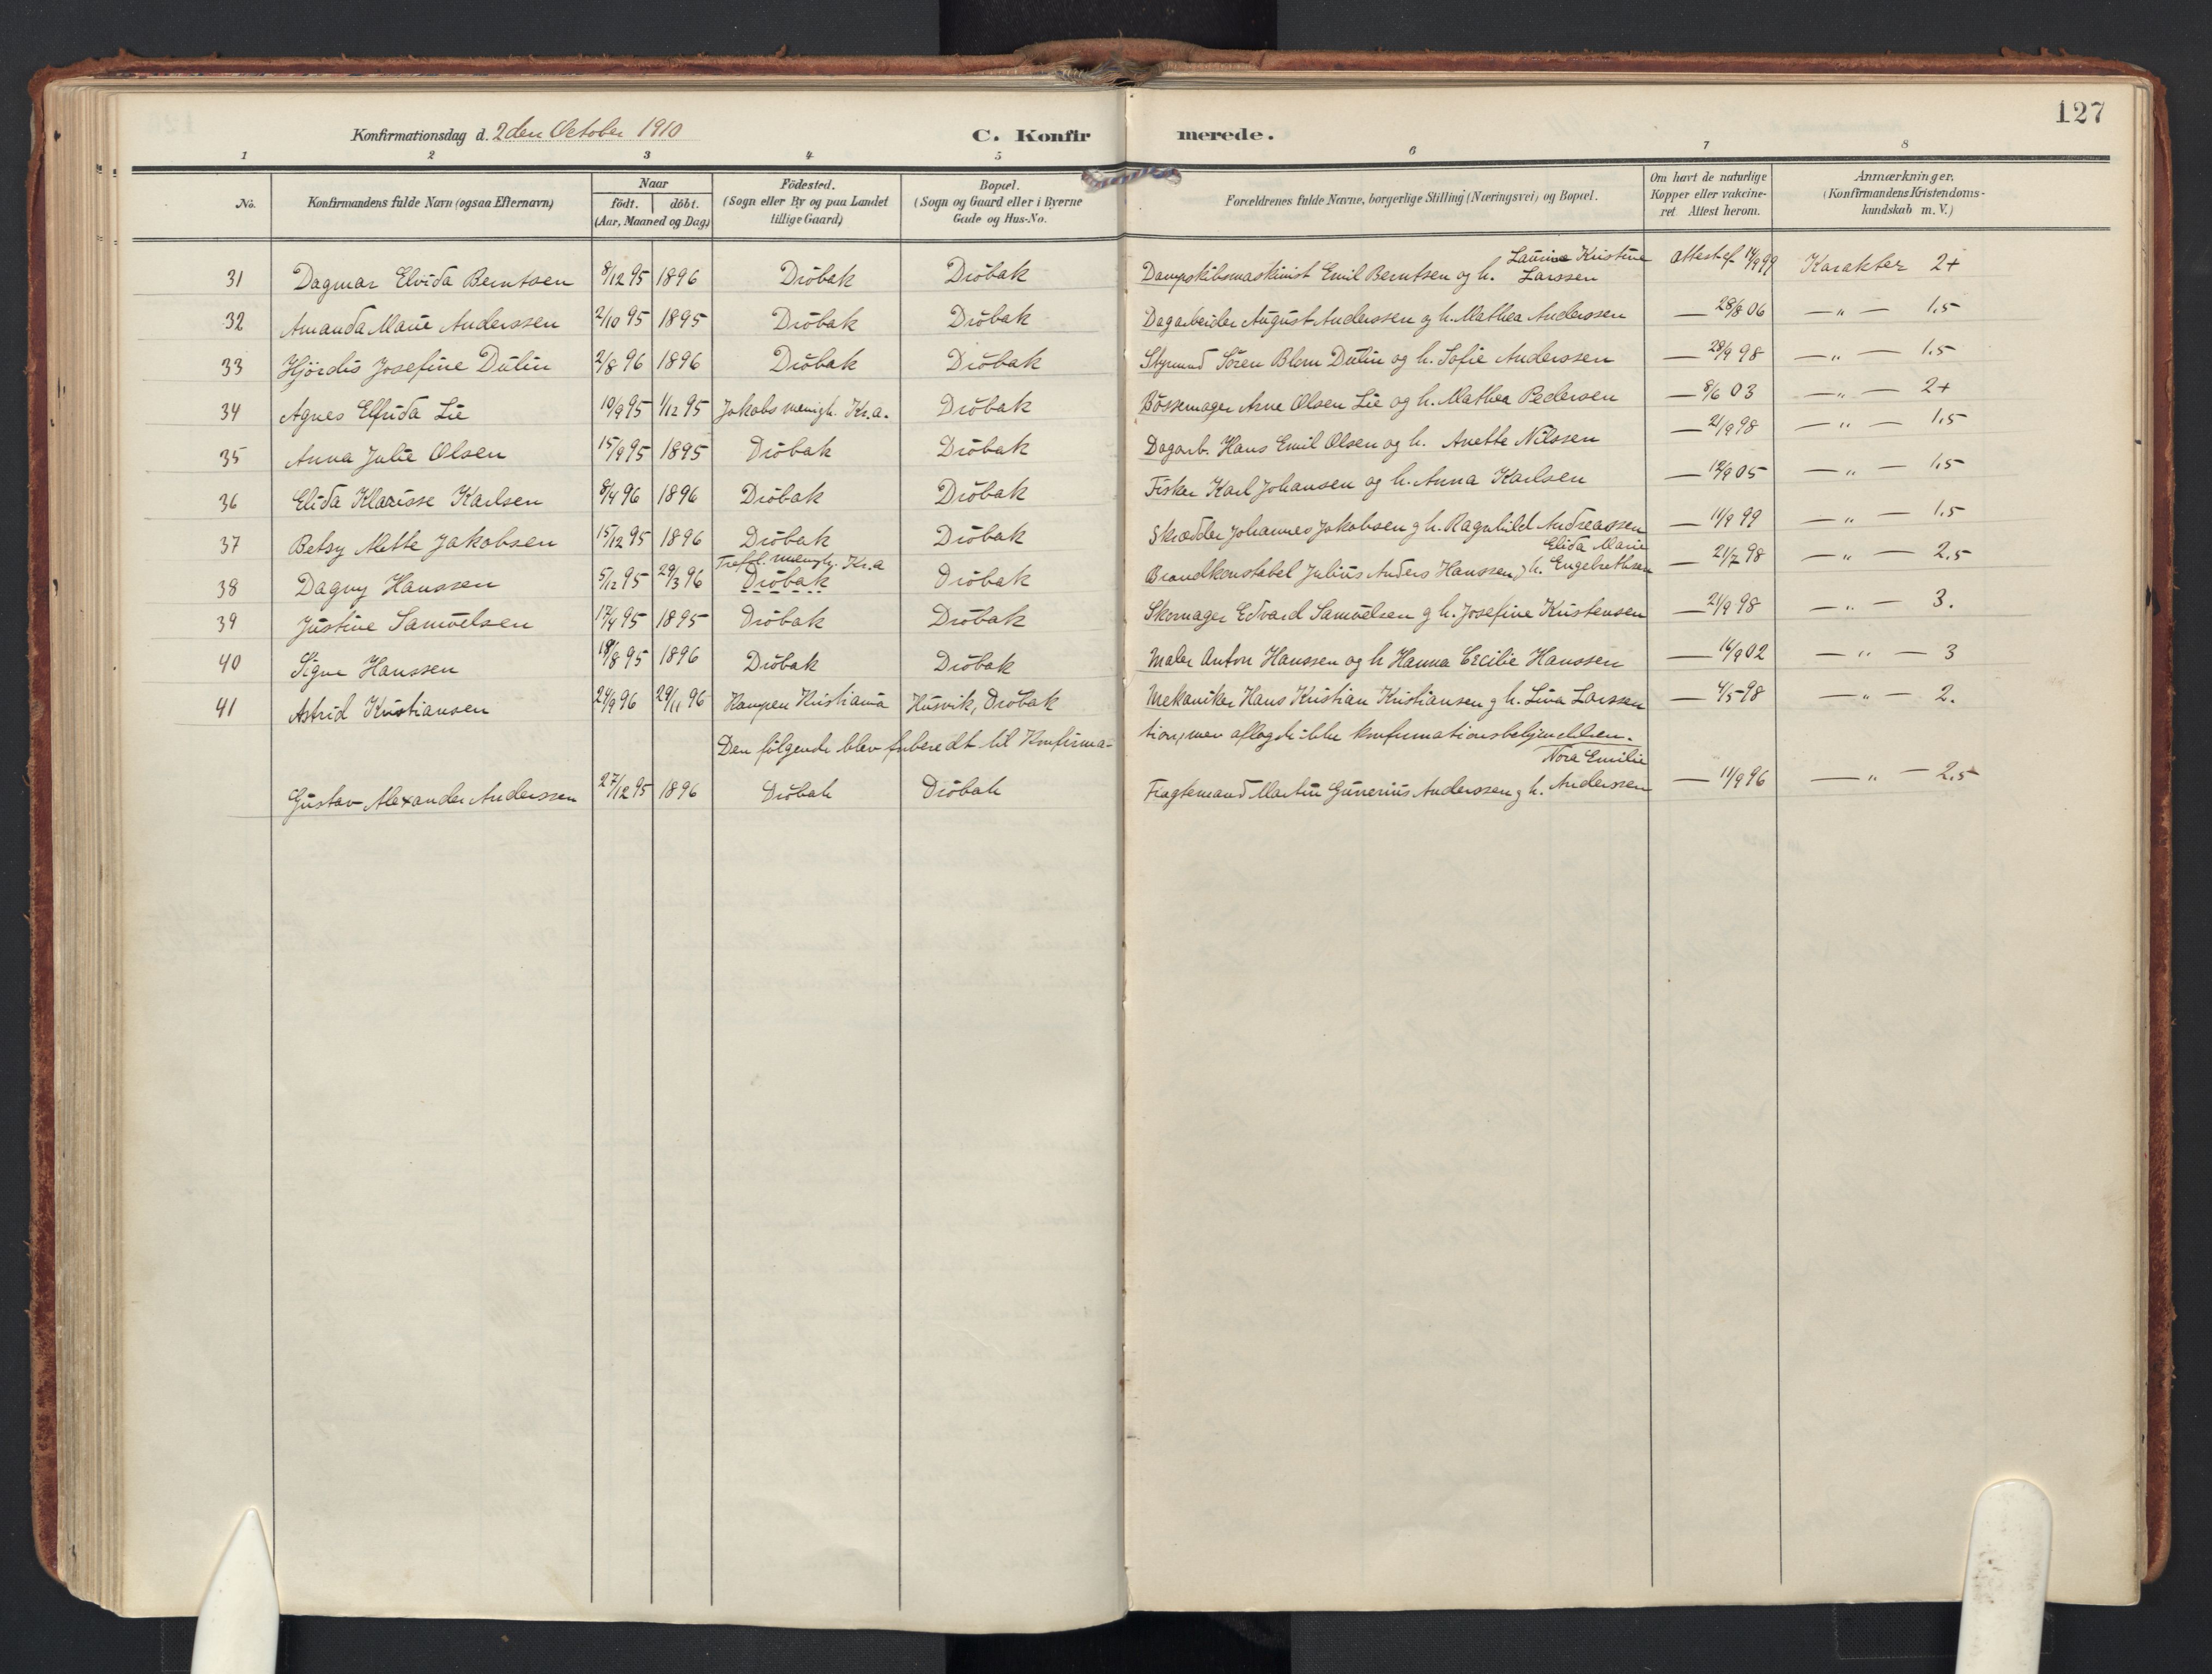 127
Konfirmationsdag d. 2den October 1910 C. Konfirmerede.
1 2 3 4 5 6 7 8
No. Konfirmandens fulde Navn (ogsaa Efternavn) Naar födt. döbt. (Aar, Maaned og Dag) Födested. (Sogn eller By og paa Landet tillige Gaard) Bopæl. (Sogn og Gaard eller i Byerne Gade og Hus-No. Forældrenes fulde Navne, borgerlige Stilling (Næringsvei) og Bopæl. Om havt de naturlige Kopper eller vakcineret. Attest herom. Anmærkninger. (Konfirmandens Kristendomskundskab m. V.)
31 Dagmar Elvida Berntsen 8/12 95 1896 Dröbak Dröbak Dampskibsmaskinist Emil Berntsen og h. Laurine Kristine Larssen Attest af 14/9 99 Karakter 2+
32 Amanda Marie Anderssen 2/10 95 1895 Dröbak Dröbak Dagarbeider August Anderssen og h. Mathea Anderssen — 28/8 06 — " — 1,5
33 Hjördis Josefine Dulin 2/8 96 1896 Dröbak Dröbak Styrmand Sören Blom Dulin og h. Sofie Anderssen — 28/9 98 — " — 1.5
34 Agnes Elfrida Lie 10/9 95 1/12 95 Jakobs menigh. Kr.a. Dröbak Bössemager Arne Olsen Lie og h. Mathea Pedersen — 8/6 03 — " — 2+
35 Anna Julie Olsen 15/9 95 1895 Dröbak Dröbak Dagarb. Hans Emil Olsen og h. Anette Nilssen — 21/9 98 — " — 1,5
36 Elida Klarisse Karlsen 8/4 96 1896 Dröbak Dröbak Fisker Karl Johansen og h. Anna Karlsen — 12/9 05 — " — 1,5
37 Betsy Mette Jakobsen 15/12 95 1896 Dröbak Dröbak Skrædder Johannes Jakobsen og h. Ragnhild Andreassen — 11/9 99 — " — 1.5
38 Dagny Hanssen 5/12 95 29/3 96 Trefl. menigh. Kr.a Dröbak Dröbak Brandkonstabel Julius Anders Hanssen og h. Elida Marie Engebrethsen — 21/7 98 — " — 2.5
39 Justine Samuelsen 17/4 95 1895 Dröbak Dröbak Skomager Edvard Samuelsen og h. Josefine Kristensen — 21/9 98 — " — 3.
40 Signe Hanssen 18/8 95 1896 Dröbak Dröbak Maler Anton Hanssen og h Hanna Cecilie Hanssen — 16/9 02 — " — 3
41 Astrid Kristiansen 24/9 96 29/11 96 Kampen Kristiania Husvik, Dröbak Mekaniker Hans Kristian Kristiansen og h. Lina Larssen — 4/5 98 — " — 2.
Den følgende blev forberedt til Konfirmation, men aflagde ikke konfirmationsbekjendelsen.
Gustav Alexander Anderssen 27/12 95 1896 Dröbak Dröbak Fragtemand Martin Gunerius Anderssen og h. Nora Emilie Anderssen — 11/9 96 — " — 2,5